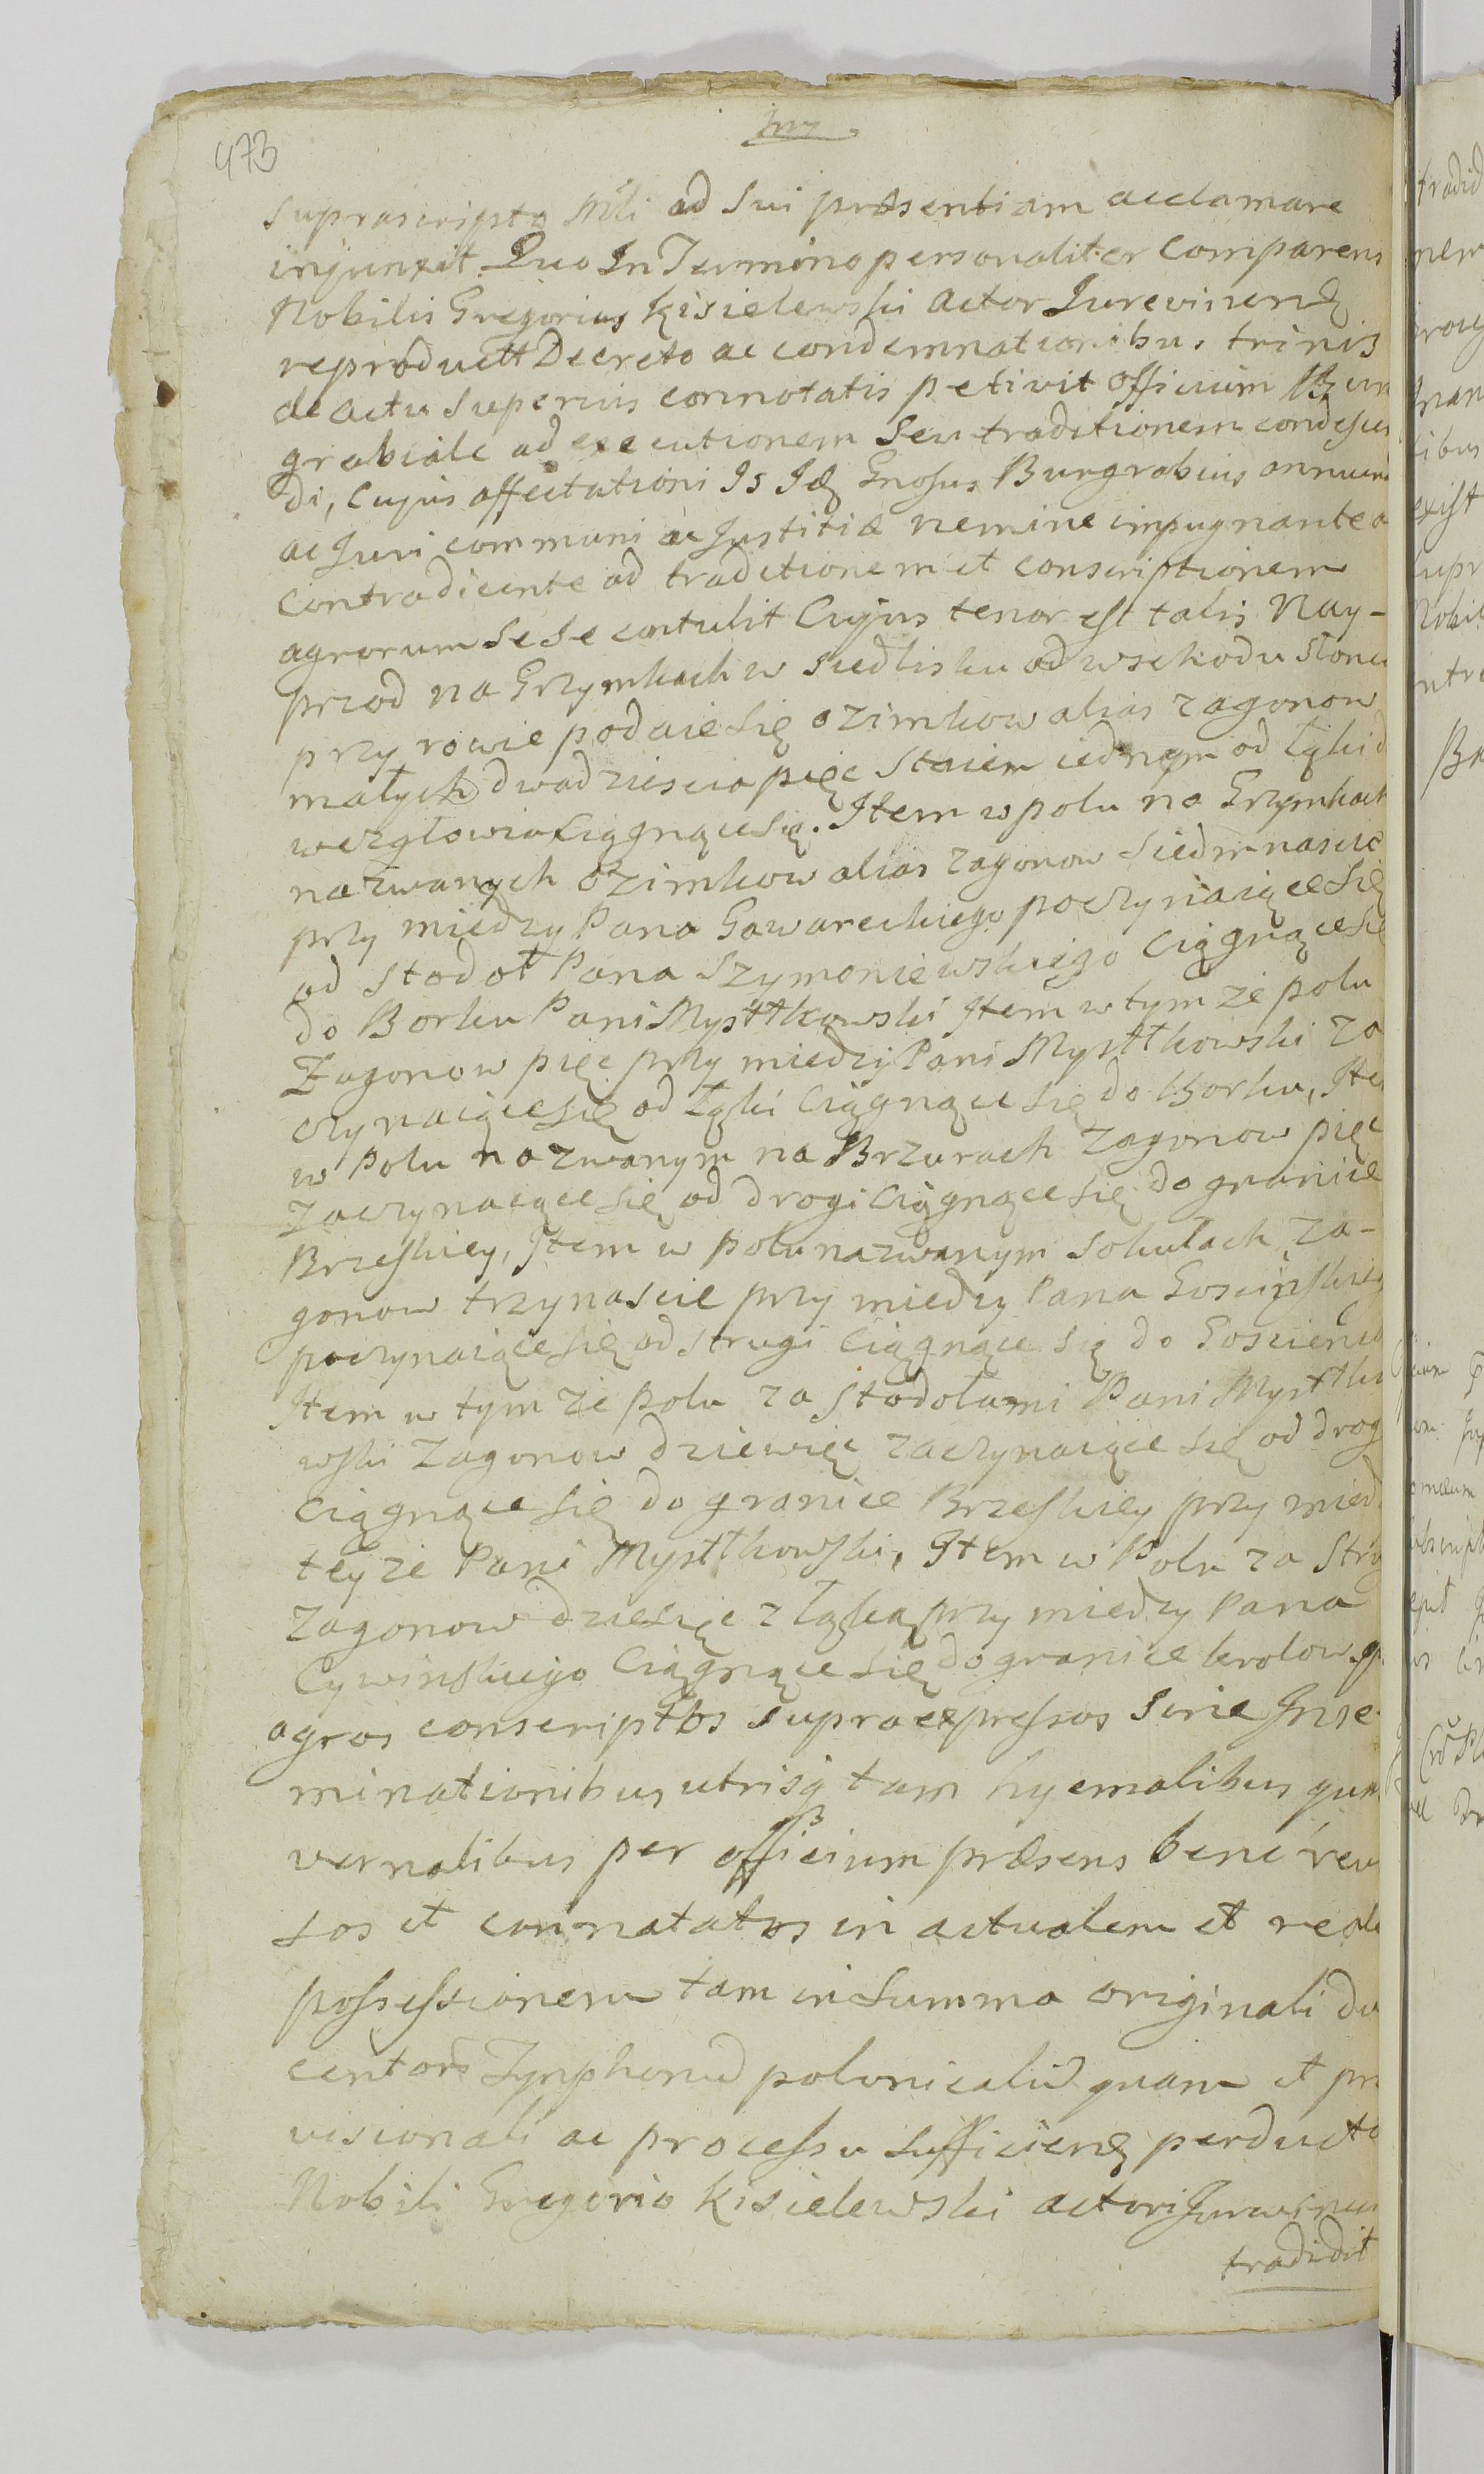 473
suprascripto Mli ad Sui præsentiam acclamare
injunxit. Quo In Termino personaliter Comparens
Nobilis Gregorius Kisielewski Actor Jurevincens
reproductt Decreto ac condemnationibus trinis
de actu Superius connotatis petivit officium Bur
grabiale ad executionem Seu traditionem condescen
di, Cujus affectationi Is Idē Gnosus Burgrabius annuens
ac Juri communi ac Justitiæ nemine impugnante a
contradicente ad traditionem et conscriptionem
agrorum Sese contulit Cujus tenor est talis Nay-
przod na Grzymkach w siedlisku od wschodu Słonca
przy rowie podaie się ozimkow alias zagonow
małych dwadziescia pięc Staiem iednym od łąki d
wezgłowia ciągnące się. Item w polu na Grzymkach
nazwanych ozimkow alias zagonow siedmnascie
przy miedzy Pana Gawareckiego poczynaiące się
od stodoł Pana Szymoniewskiego ciągnące się
do Borku Pani Mysttkowski Item w tym ze polu
Zagonow pięc przy miedzy Pani Mysttkowski za
czynaiące się od łąki ciągnące się do Borku, Ite
w Polu nazwanym na Brzurach zagonow pięc
zaczynaiące się od drogi ciągnące się do granice
Brzeskiey, Item w polu nazwanym Sokułach za-
gonow trzynascie przy miedzy Pana Gosciński
poczynaiące się od strugi ciągnące się do Goscienca
Item w tym ze polu za Stodołami Pani Mysttko
wski Zagonow dziewięc zaczynaiące się od drog
ciągnące się do granice Brzeskiey przy miedz
teyze Pani Mysttkowski, Item w Polu za Strug
zagonow dziesięc z łąką przy miedzy Pana
Cywinskiego ciągnące się do granice krolow. q
agros conscriptos supra expressos Sine Inse
minationibus utrisq tam hyemalibus quam
vernalibus per officium præsens bene revi
sos et connotatos in actualem et reale
possessionem tam in Summa originali du
centorũ Tynphonũ polonicaliũ quam et pro
visionali ac processu sufficienẽ perducto
Nobili Gregorio Kisielewski actori Jurevincen
tradidit